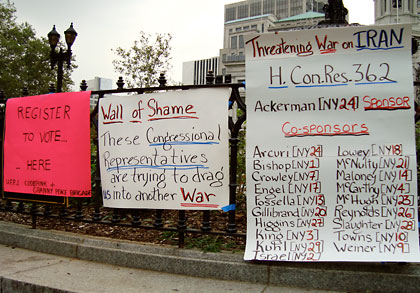 REGISTER
TO VOTE...
... HERE
CODEPINK +
GRANNY PEACE BRIGADE
Wall of Shame
These Congressional
Representatives
are trying to drag
us into another War
Threatening War on IRAN
H. Con. Res. 362
Ackerman [NY24] Sponsor
Co-sponsors
Arcuri [NY24]
Bishop [NY1]
Crowley [NY7]
Engel [NY17]
Fossella [NY13]
Gillibrand [NY20]
Higgins [NY27]
King [NY3]
Kuhl [NY29]
Israel [NY2]
Lowey [NY18]
McNulty [NY21]
Maloney [NY14]
McCarthy [NY4]
McHugh [NY23]
Reynolds [NY26]
Slaughter [NY28]
Towns [NY10]
Weiner [NY9]